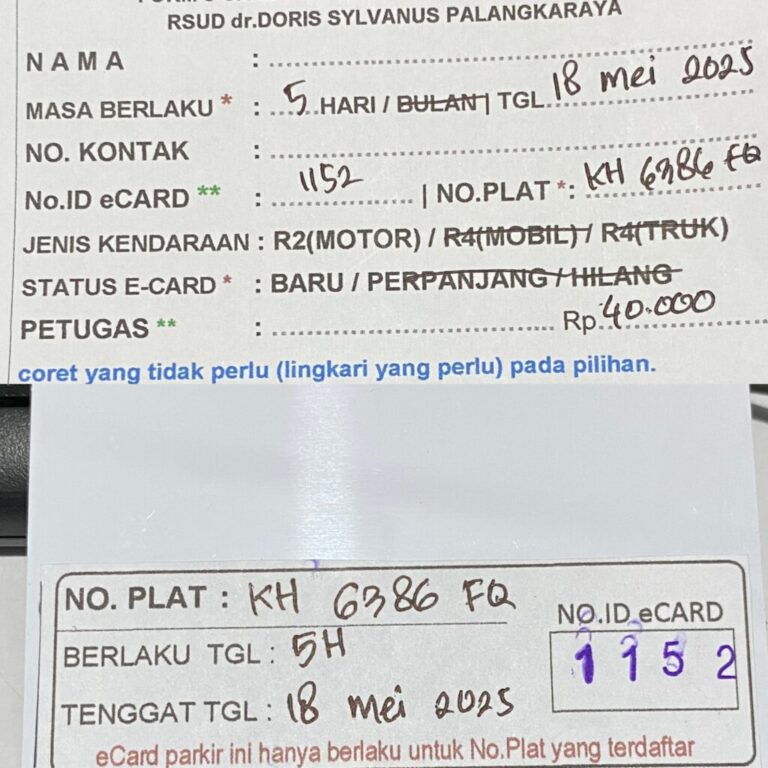 RSUD dr.DORIS SYLVANUS PALANGKARAYA
N A M A :
MASA BERLAKU * : 5 HARI / BULAN | TGL 18 mei 2025
NO. KONTAK :
No.ID eCARD ** : 1152 | NO.PLAT *: KH 6386 FQ
JENIS KENDARAAN : R2(MOTOR) / R4(MOBIL) / R4(TRUK)
STATUS E-CARD * : BARU / PERPANJANG / HILANG
PETUGAS ** : Rp. 40.000
coret yang tidak perlu (lingkari yang perlu) pada pilihan.
NO. PLAT : KH 6386 FQ
NO.ID eCARD
BERLAKU TGL : 5H
1152
TENGGAT TGL : 18 mei 2025
eCard parkir ini hanya berlaku untuk No.Plat yang terdaftar